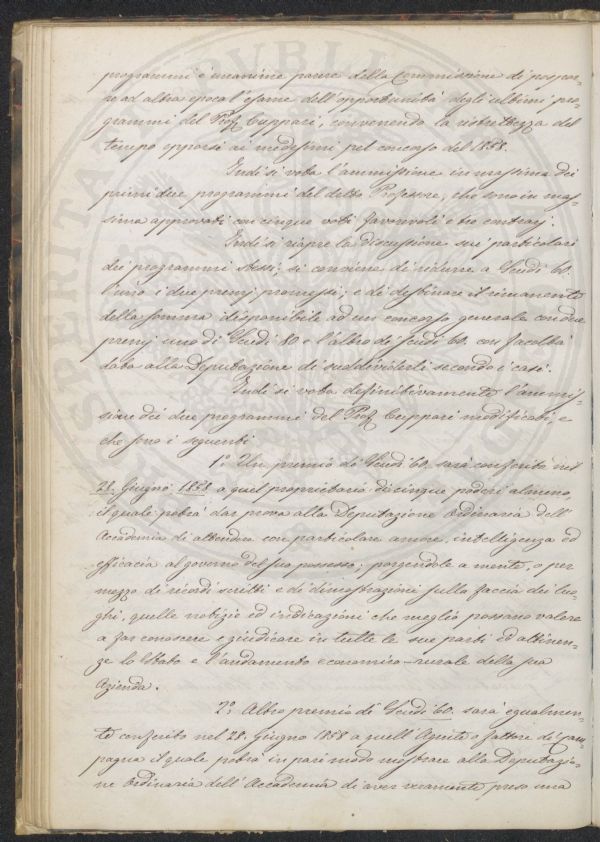 programmi è unanime parere della Commissione di pospor-
re ad altra epoca l'esame dell'opportunità degli ultimi pro-
grammi del Prof. Cuppari, convenendo la ristrettezza del
tempo opporsi ai medesimi pel concorso del 1858.
Indi si vota l'ammissione in massima dei
primi due programmi del detto Professore, che sono in mas-
sima approvati con cinque voti favorevoli e tre contrarj
Indi si riapre la discussione sui particolari
dei programmi stessi; si conviene di ridurre a Scudi 60.
l'uno i due premj promessi; e di destinare il rimanente
della somma disponibile ad un concorso generale con due
premj uno di Scudi 80 e l'altro di Scudi 60. con facoltà
data alla Deputazione di suddividerli secondo i casi.
Indi si vota definitivamente l'ammis-
sione dei due programmi del Prof. Cuppari modificati, e
che sono i seguenti
1.º Un premio di Scudi 60. sarà conferito nel
28. Giugno 1858 a quel proprietario di cinque poderi almeno,
il quale potrà dar prova alla Deputazione Ordinaria dell'
Accademia di attendere con particolare amore, intelligenza ed
efficacia al governo del suo possesso; porgendole a mente, o per
mezzo di ricordi scritti e di dimostrazione sulla faccia dei luo-
ghi, quelle notizie ed indicazioni che meglio possano valere
a far conoscere e giudicare in tutte le sue parti ed attinen-
ze lo Stato e l'andamento economico-rurale della sua
Azienda.
2.º Altro premio di Scudi 60. sarà egualmen-
te conferito nel 28. Giugno 1858 a quell'Agente o fattore di cam-
pagna il quale potrà in pari modo mostrare alla Deputazio-
ne Ordinaria dell'Accademia di aver veramente preso una